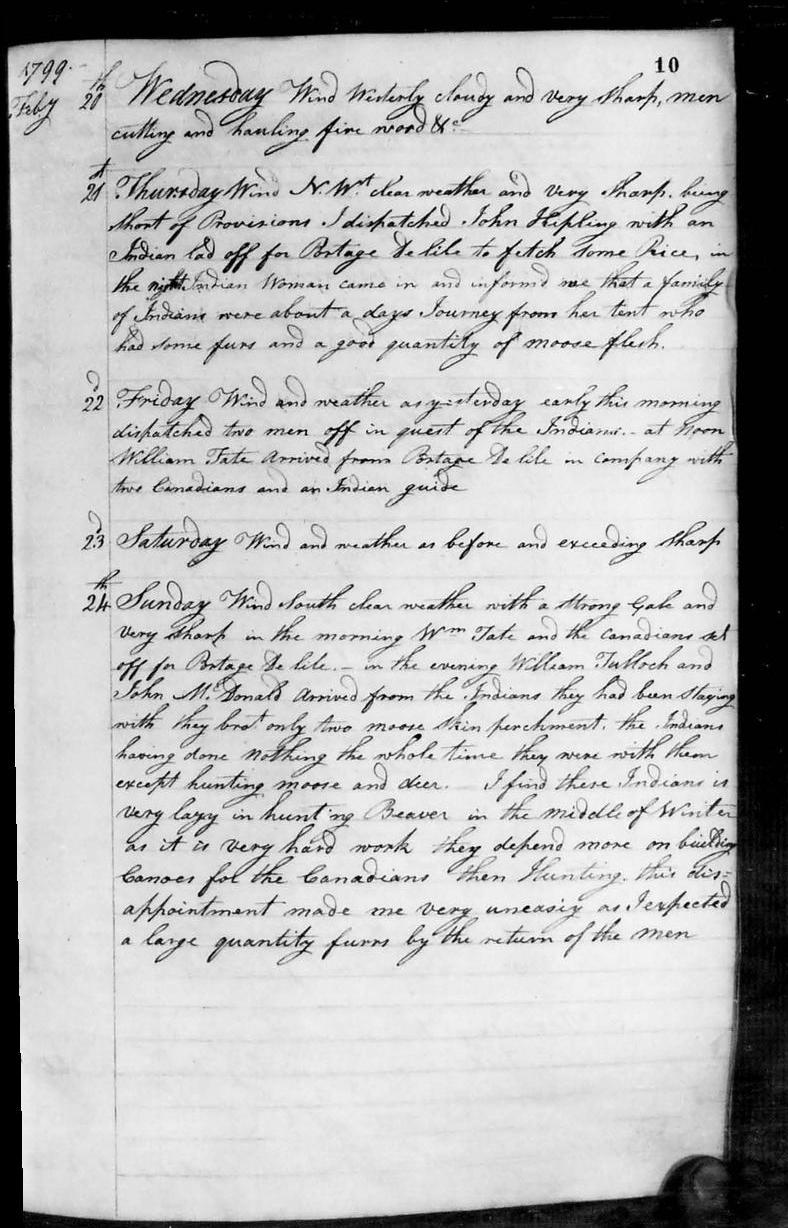 10
1799.
Feby
20th Wednesday Wind Westerly cloudy and very sharp, men
cutting and hauling fire wood &c.
21st Thursday Wind N. Wt. clear weather and very sharp. being
short of Provisions I dispatched John Kipling with an
Indian lad off for Portage De lile to fetch some Rice, in
the night Indian Woman came in and inform'd me that a family
of Indians were about a days Journey from her tent who
had some furs and a good quantity of moose flesh.
22d Friday Wind and weather as yesterday early this morning
dispatched two men off in quest of the Indians. - at Noon
William Tate arrived from Portage De lile in company with
two Canadians and an Indian guide
23d Saturday Wind and weather as before and exceeding sharp
24th Sunday Wind South clear weather with a strong Gale and
very sharp in the morning Wm Tate and the Canadians set
off for Portage De lile. - in the evening William Tulloch and
John Mc.Donald arrived from the Indians they had been staying
with they brot. only two moose skin perchment. the Indians
having done nothing the whole time they were with them
except hunting moose and deer. I find these Indians is
very lazy in hunting Beaver in the middle of Winter
as it is very hard work they depend more on building
Canoes for the Canadians then Hunting. this dis=
appointment made me very uneasiy as I expected
a large quantity furrs by the return of the men